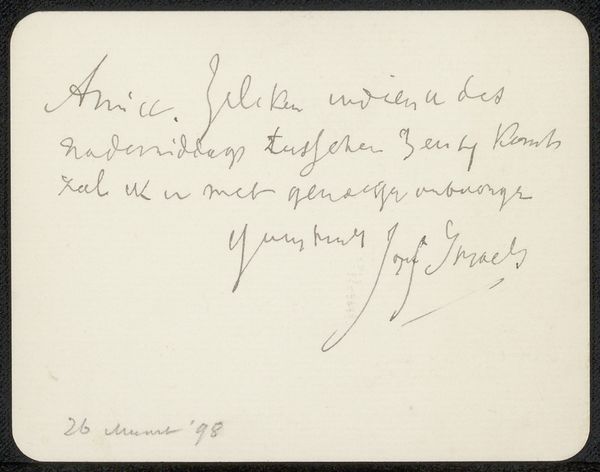 Amice. Zilcken indien u des
namiddags tusschen 3 en 4 komt
zal ik u met genoegen ontvangen
Jozef Israels
26 Maart '98